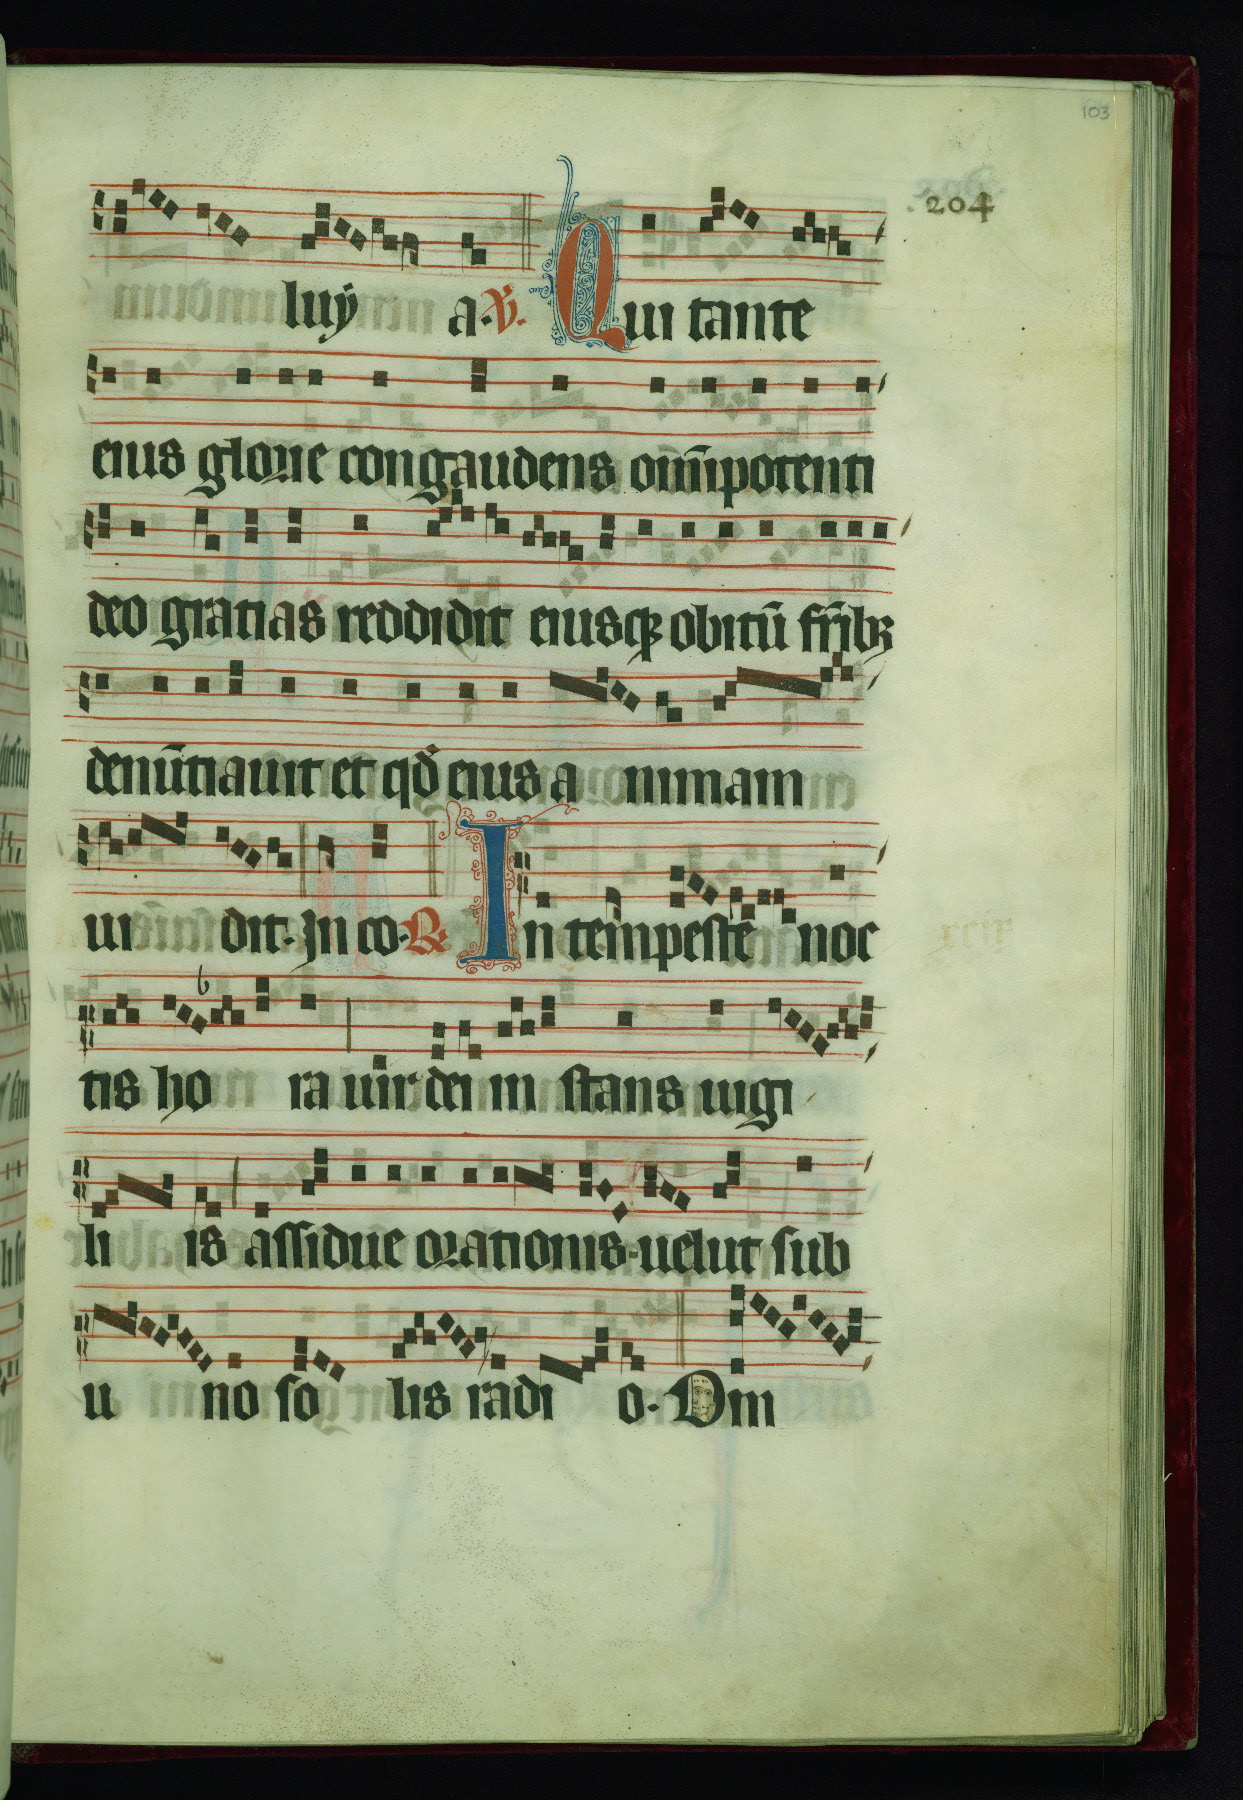 103
204
luÿ a. V. Qui tante
eius glorie congaudens om̄ipotenti
deo gratias reddidit eiusqꝫ obitū fr̄ibꝫ
denūtiauit et qđ eius a nimam
ui dit. In co. R. In tempeste noc
tis ho ra uir dei in stans uigi
li is assidue orationis. uelut sub
u no so lis radi o. Om̄